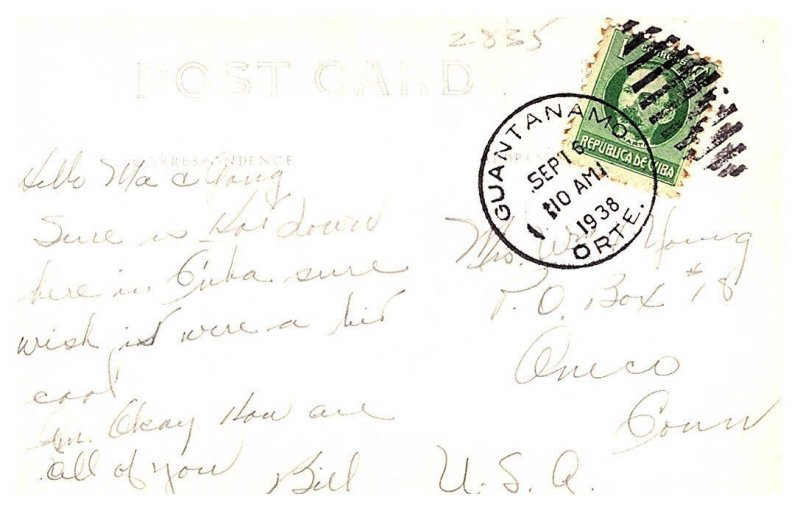 2835
POST CARD
CORRESPONDENCE
GUANTANAMO,
SEPT 6
10 AM
1938
ORTE.
REPUBLICA DE CUBA
Hello Ma &
Sure is Hot down
here in Cuba sure
wish it were a bit
cool
Am. Okay How are
all of you
Bill
Mrs. Young
P.O. Box #18
Oneco
Conn
U.S.A.